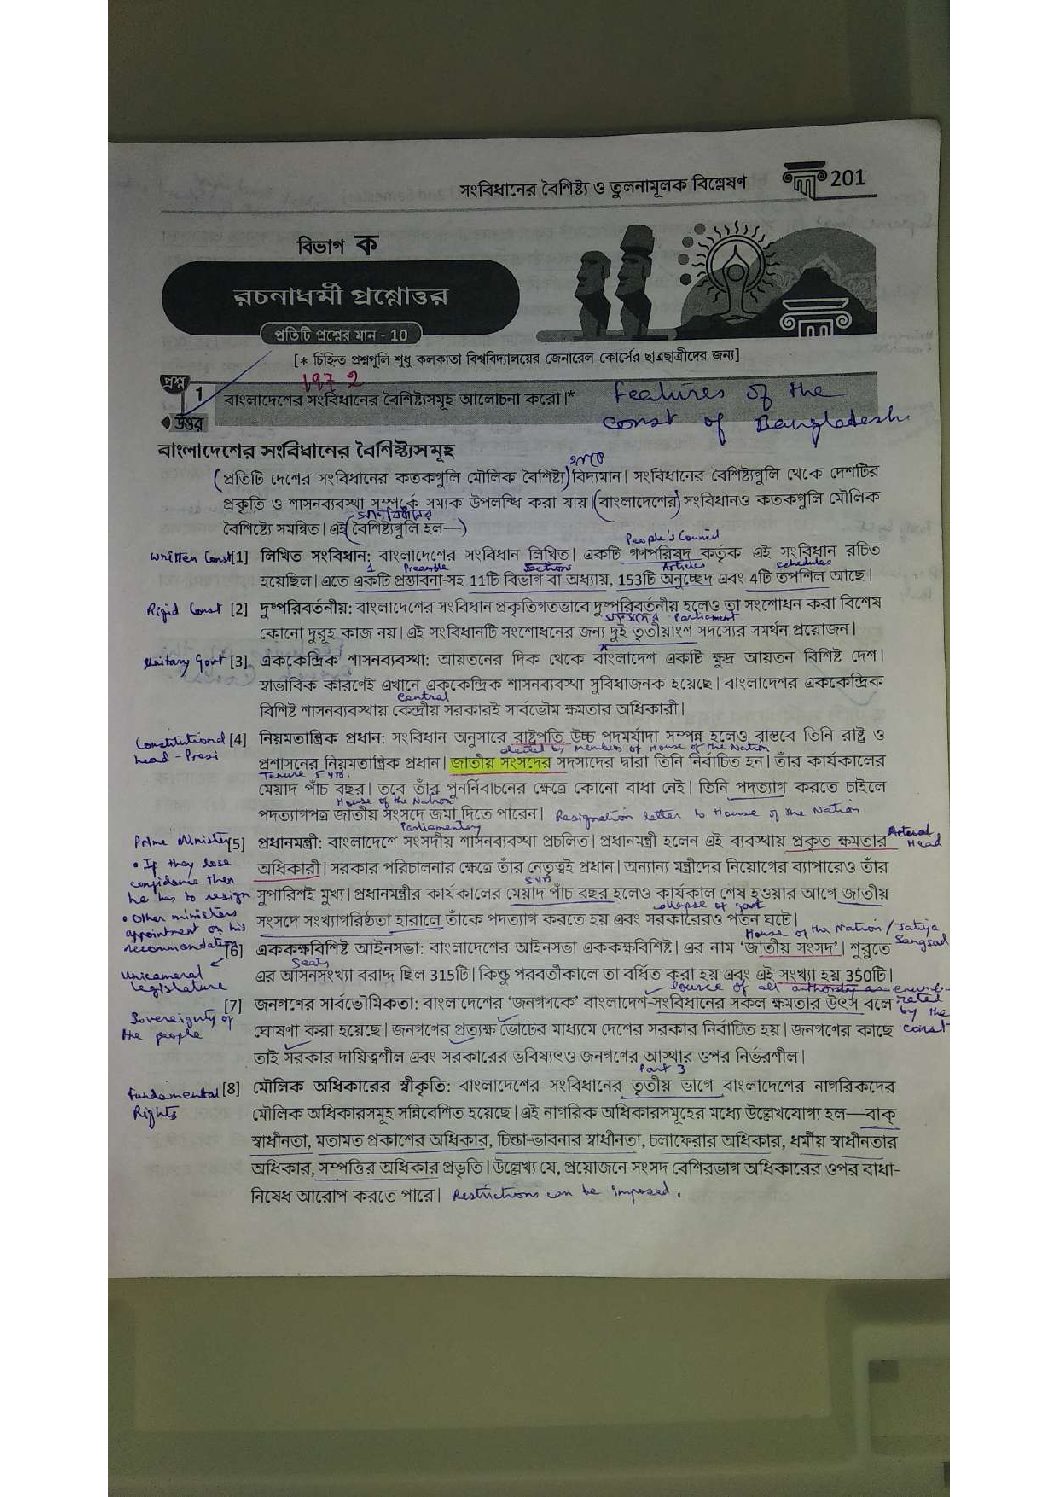 সংবিধানের বৈশিষ্ট্য ও তুলনামূলক বিশ্লেষণ 201
বিভাগ ক
রচনাধর্মী প্রশ্নোত্তর
প্রতিটি প্রশ্নের মান - 10
[* চিহ্নিত প্রশ্নগুলি শুধু কলকাতা বিশ্ববিদ্যালয়ের জেনারেল কোর্সের ছাত্রছাত্রীদের জন্য]
1972
প্রশ্ন 1 বাংলাদেশের সংবিধানের বৈশিষ্ট্যসমূহ আলোচনা করো।* Features of the
উত্তর const of Bangladesh
বাংলাদেশের সংবিধানের বৈশিষ্ট্যসমূহ
প্রতিটি দেশের সংবিধানের কতকগুলি মৌলিক বৈশিষ্ট্য বিদ্যমান। সংবিধানের বৈশিষ্ট্যগুলি থেকে দেশটির
প্রকৃতি ও শাসনব্যবস্থা সম্পর্কে সম্যক উপলব্ধি করা যায় (বাংলাদেশের) সংবিধানও কতকগুলি মৌলিক
বৈশিষ্ট্যে সমন্বিত। এই (বৈশিষ্ট্যগুলি হল—)
People's Council
Written Const [1] লিখিত সংবিধান: বাংলাদেশের সংবিধান লিখিত। একটি গণপরিষদ কর্তৃক এই সংবিধান রচিত
1 Preamble Section Articles schedules
হয়েছিল। এতে একটি প্রস্তাবনা সহ 11টি বিভাগ বা অধ্যায়, 153টি অনুচ্ছেদ এবং 4টি তপশিল আছে।
Rigid Const [2] দুষ্পরিবর্তনীয়: বাংলাদেশের সংবিধান প্রকৃতিগতভাবে দুষ্পরিবর্তনীয় হলেও তা সংশোধন করা বিশেষ
Parliament
কোনো দুরূহ কাজ নয়। এই সংবিধানটি সংশোধনের জন্য দুই তৃতীয়াংশ সদস্যের সমর্থন প্রয়োজন।
Unitary Govt [3] এককেন্দ্রিক শাসনব্যবস্থা: আয়তনের দিক থেকে বাংলাদেশ একটি ক্ষুদ্র আয়তন বিশিষ্ট দেশ।
স্বাভাবিক কারণেই এখানে এককেন্দ্রিক শাসনব্যবস্থা সুবিধাজনক হয়েছে। বাংলাদেশের এককেন্দ্রিক
Central
বিশিষ্ট শাসনব্যবস্থায় কেন্দ্রীয় সরকারই সার্বভৌম ক্ষমতার অধিকারী।
Constitutional [4] নিয়মতান্ত্রিক প্রধান: সংবিধান অনুসারে রাষ্ট্রপতি উচ্চ পদমর্যাদা সম্পন্ন হলেও বাস্তবে তিনি রাষ্ট্র ও
head - Presi elected by members of House of the Nation
প্রশাসনের নিয়মতান্ত্রিক প্রধান। জাতীয় সংসদের সদস্যদের দ্বারা তিনি নির্বাচিত হন। তাঁর কার্যকালের
Tenure 5 yrs.
মেয়াদ পাঁচ বছর। তবে তাঁর পুনর্নির্বাচনের ক্ষেত্রে কোনো বাধা নেই। তিনি পদত্যাগ করতে চাইলে
House of the Nation
পদত্যাগপত্র জাতীয় সংসদে জমা দিতে পারেন। Resignation letter to House of the Nation
Parliamentary
Prime Ministry [5] প্রধানমন্ত্রী: বাংলাদেশে সংসদীয় শাসনব্যবস্থা প্রচলিত। প্রধানমন্ত্রী হলেন এই ব্যবস্থায় প্রকৃত ক্ষমতার Head
• If they lose অধিকারী। সরকার পরিচালনার ক্ষেত্রে তাঁর নেতৃত্বই প্রধান। অন্যান্য মন্ত্রীদের নিয়োগের ব্যাপারেও তাঁর
confidence then 5 yrs
he has to resign সুপারিশই মুখ্য। প্রধানমন্ত্রীর কার্যকালের মেয়াদ পাঁচ বছর হলেও কার্যকাল শেষ হওয়ার আগে জাতীয়
• Other ministers collapse of govt
appointment on his সংসদে সংখ্যাগরিষ্ঠতা হারালে তাঁকে পদত্যাগ করতে হয় এবং সরকারেরও পতন ঘটে।
House of the Nation / Jatiya Sangsad
recommendation [6] এককক্ষবিশিষ্ট আইনসভা: বাংলাদেশের আইনসভা এককক্ষবিশিষ্ট। এর নাম 'জাতীয় সংসদ'। শুরুতে
Unicameral Seats
legislature এর আসনসংখ্যা বরাদ্দ ছিল 315টি। কিন্তু পরবর্তীকালে তা বর্ধিত করা হয় এবং এই সংখ্যা হয় 350টি।
Source of all
Sovereignty of [7] জনগণের সার্বভৌমিকতা: বাংলাদেশের 'জনগণকে' বাংলাদেশ-সংবিধানের সকল ক্ষমতার উৎস বলে by the
the people ঘোষণা করা হয়েছে। জনগণের প্রত্যক্ষ ভোটের মাধ্যমে দেশের সরকার নির্বাচিত হয়। জনগণের কাছে const
তাই সরকার দায়িত্বশীল এবং সরকারের ভবিষ্যৎও জনগণের আস্থার ওপর নির্ভরশীল।
Part 3
Fundamental [8] মৌলিক অধিকারের স্বীকৃতি: বাংলাদেশের সংবিধানের তৃতীয় ভাগে বাংলাদেশের নাগরিকদের
Rights মৌলিক অধিকারসমূহ সন্নিবেশিত হয়েছে। এই নাগরিক অধিকারসমূহের মধ্যে উল্লেখযোগ্য হল—বাক্
স্বাধীনতা, মতামত প্রকাশের অধিকার, চিন্তা-ভাবনার স্বাধীনতা, চলাফেরার অধিকার, ধর্মীয় স্বাধীনতার
অধিকার, সম্পত্তির অধিকার প্রভৃতি। উল্লেখ্য যে, প্রয়োজনে সংসদ বেশিরভাগ অধিকারের ওপর বাধা-
নিষেধ আরোপ করতে পারে। Restrictions can be imposed.